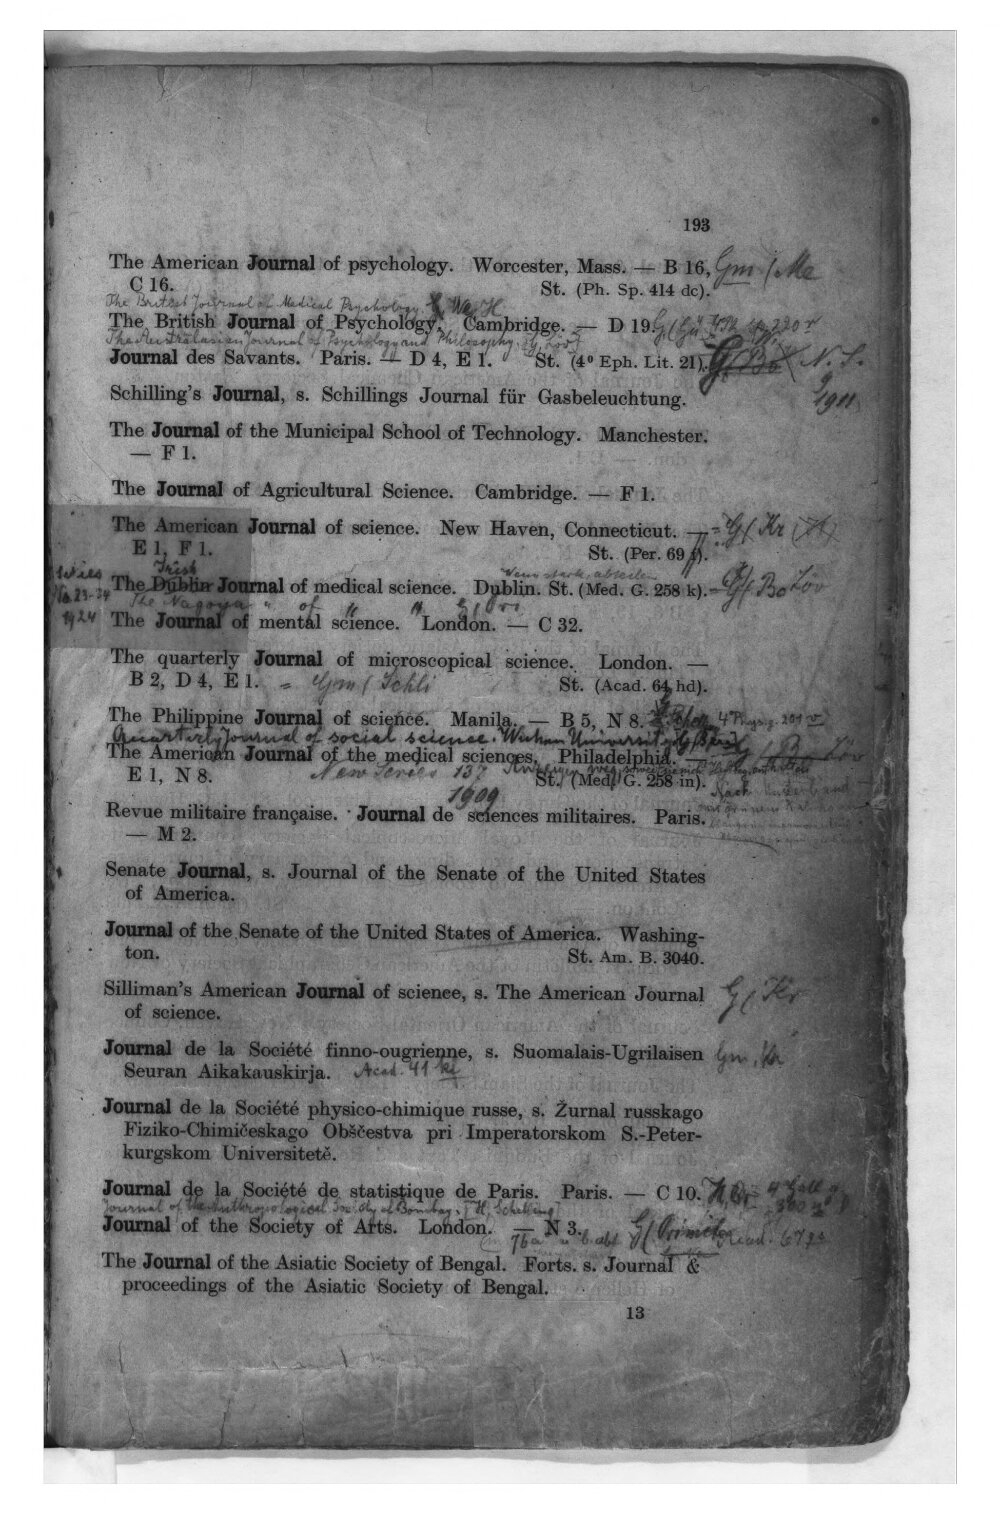 193
The American Journal of psychology. Worcester, Mass. — B 16, Gm
C 16. St. (Ph. Sp. 414 dc).
The British Journal of Medical Psychology.
The British Journal of Psychology. Cambridge. — D 19.
The Australasian Journal of Psychology and Philosophy.
Journal des Savants. Paris. — D 4, E 1. St. (4⁰ Eph. Lit. 21). N. S.
1911
Schilling's Journal, s. Schillings Journal für Gasbeleuchtung.
The Journal of the Municipal School of Technology. Manchester.
— F 1.
The Journal of Agricultural Science. Cambridge. — F 1.
The American Journal of science. New Haven, Connecticut. — G Kr
E 1, F 1. St. (Per. 69 f).
Irish
The Dublin Journal of medical science. Dublin. St. (Med. G. 258 k). Bo Löv
Series
No. 23-34
1924
The Nagoya " of " "
The Journal of mental science. London. — C 32.
The quarterly Journal of microscopical science. London. —
B 2, D 4, E 1. = Gm Schli St. (Acad. 64 hd).
The Philippine Journal of science. Manila. — B 5, N 8. 4° Physg. 201
Quarterly Journal of social science. Wuhan University.
The American Journal of the medical sciences. Philadelphia. —
E 1, N 8. New Series 137 St. (Med. G. 258 in).
1909
Revue militaire française. Journal de sciences militaires. Paris.
— M 2.
Senate Journal, s. Journal of the Senate of the United States
of America.
Journal of the Senate of the United States of America. Washing-
ton. St. Am. B. 3040.
Silliman's American Journal of science, s. The American Journal G Kr
of science.
Journal de la Société finno-ougrienne, s. Suomalais-Ugrilaisen Gm
Seuran Aikakauskirja. Acad. 41
Journal de la Société physico-chimique russe, s. Žurnal russkago
Fiziko-Chimičeskago Obščestva pri Imperatorskom S.-Peter-
kurgskom Universitetě.
Journal de la Société de statistique de Paris. Paris. — C 10.
Journal of the Anthropological Society of Bombay.
Journal of the Society of Arts. London. — N 3.
The Journal of the Asiatic Society of Bengal. Forts. s. Journal &
proceedings of the Asiatic Society of Bengal.
13